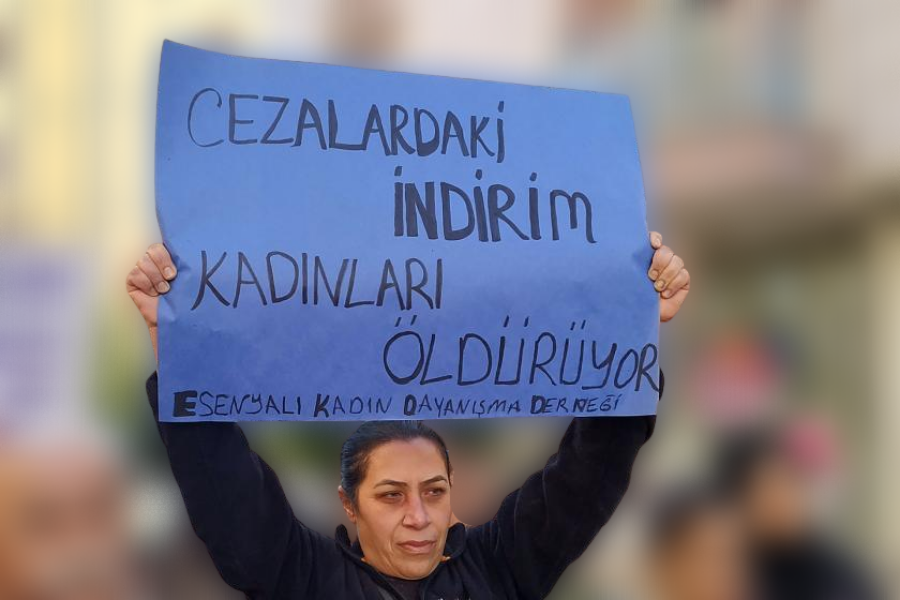 CEZALARDAKİ
İNDİRİM
KADINLARI
ÖLDÜRÜYOR
ESENYALI KADIN DAYANIŞMA DERNEĞİ